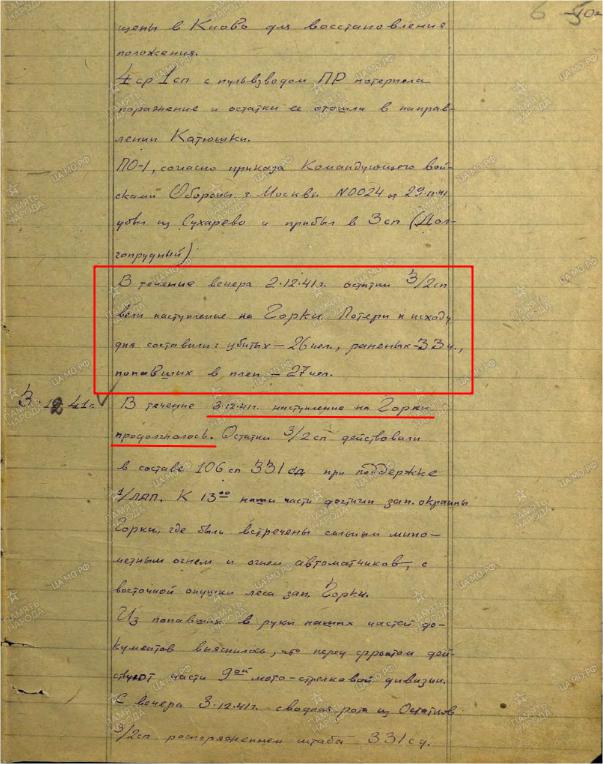 щены в Киово для восстановления
положения.
4 ср 1 сп с пульвзводом ПР потерпела
поражение и остатки ее отошли в направ-
лении Катюшки.
ПО-1, согласно приказа Командующего вой-
сками Обороны г. Москвы N0024 от 29.11.41
убыл из Сухарево и прибыл в 3 сп (Дол-
гопрудный)
В течение вечера 2.12.41 г. остатки 3/2 сп
вели наступление на Горки. Потери к исходу
дня составили: убитых – 26 чел., раненых – 33 ч.,
попавших в плен – 27 чел.
3.12.41 г. В течение 3.12.41 г. наступление на Горки
продолжалось. Остатки 3/2 сп действовали
в составе 106 сп 331 сд при поддержке
1/ЛАП. К 13 00 наши части достигли зап. окраины
Горки, где были встречены сильным мино-
метным огнем и огнем автоматчиков, с
восточной опушки леса зап. Горки.
Из попавших в руки наших частей до-
кументов выяснилось, что перед фронтом дей-
ствуют части 9 ой мото-стрелковой дивизии.
С вечера 3.12.41 г. сводная рота из остатков
3/2 сп распоряжением штаба 331 сд.